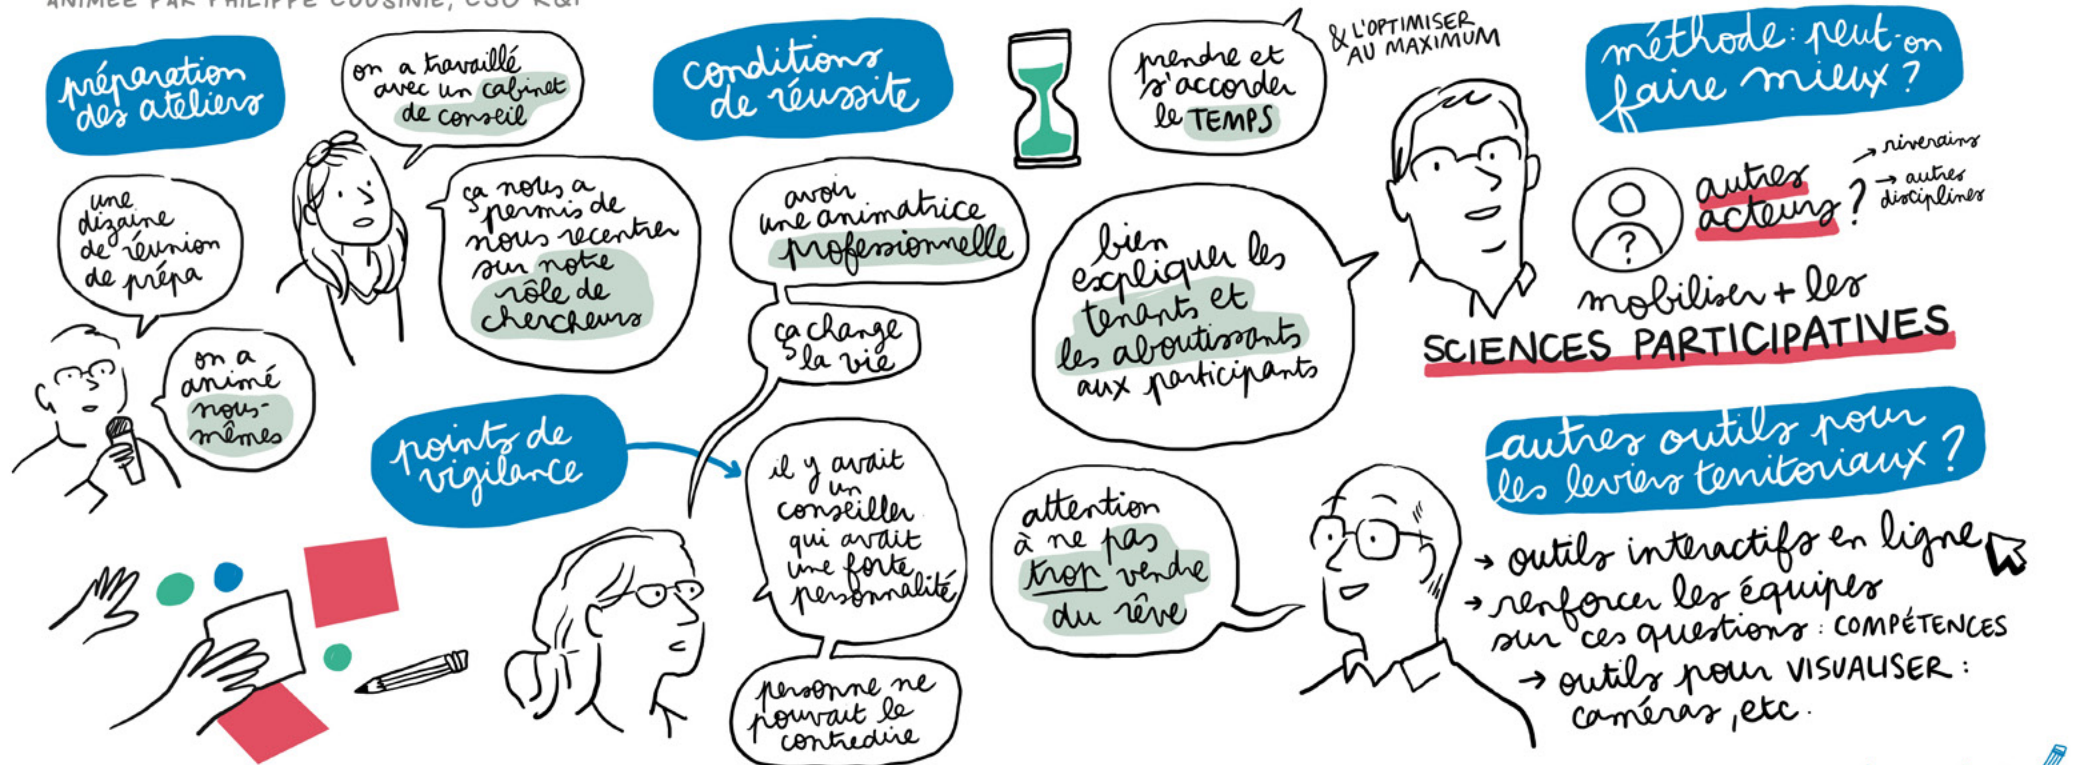 ANIMÉE PAR PHILIPPE COUSINIÉ, CSO R&I
préparation
des ateliers
une
dizaine
de réunion
de prépa
on a
animé
nous-
mêmes
on a travaillé
avec un cabinet
de conseil
ça nous a
permis de
nous recentrer
sur notre
rôle de
chercheurs
conditions
de réussite
avoir
une animatrice
professionnelle
ça change
la vie
prendre et
s'accorder
le TEMPS
& L'OPTIMISER
AU MAXIMUM
bien
expliquer les
tenants et
les aboutissants
aux participants
points de
vigilance
il y avait
un
conseiller
qui avait
une forte
personnalité
personne ne
pouvait le
contredire
attention
à ne pas
trop vendre
du rêve
méthode : peut-on
faire mieux ?
?
autres
acteurs ?
→ riverains
→ autres
disciplines
mobiliser + les
SCIENCES PARTICIPATIVES
autres outils pour
les leviers territoriaux ?
→ outils interactifs en ligne
→ renforcer les équipes
sur ces questions : COMPÉTENCES
→ outils pour VISUALISER :
caméras, etc.